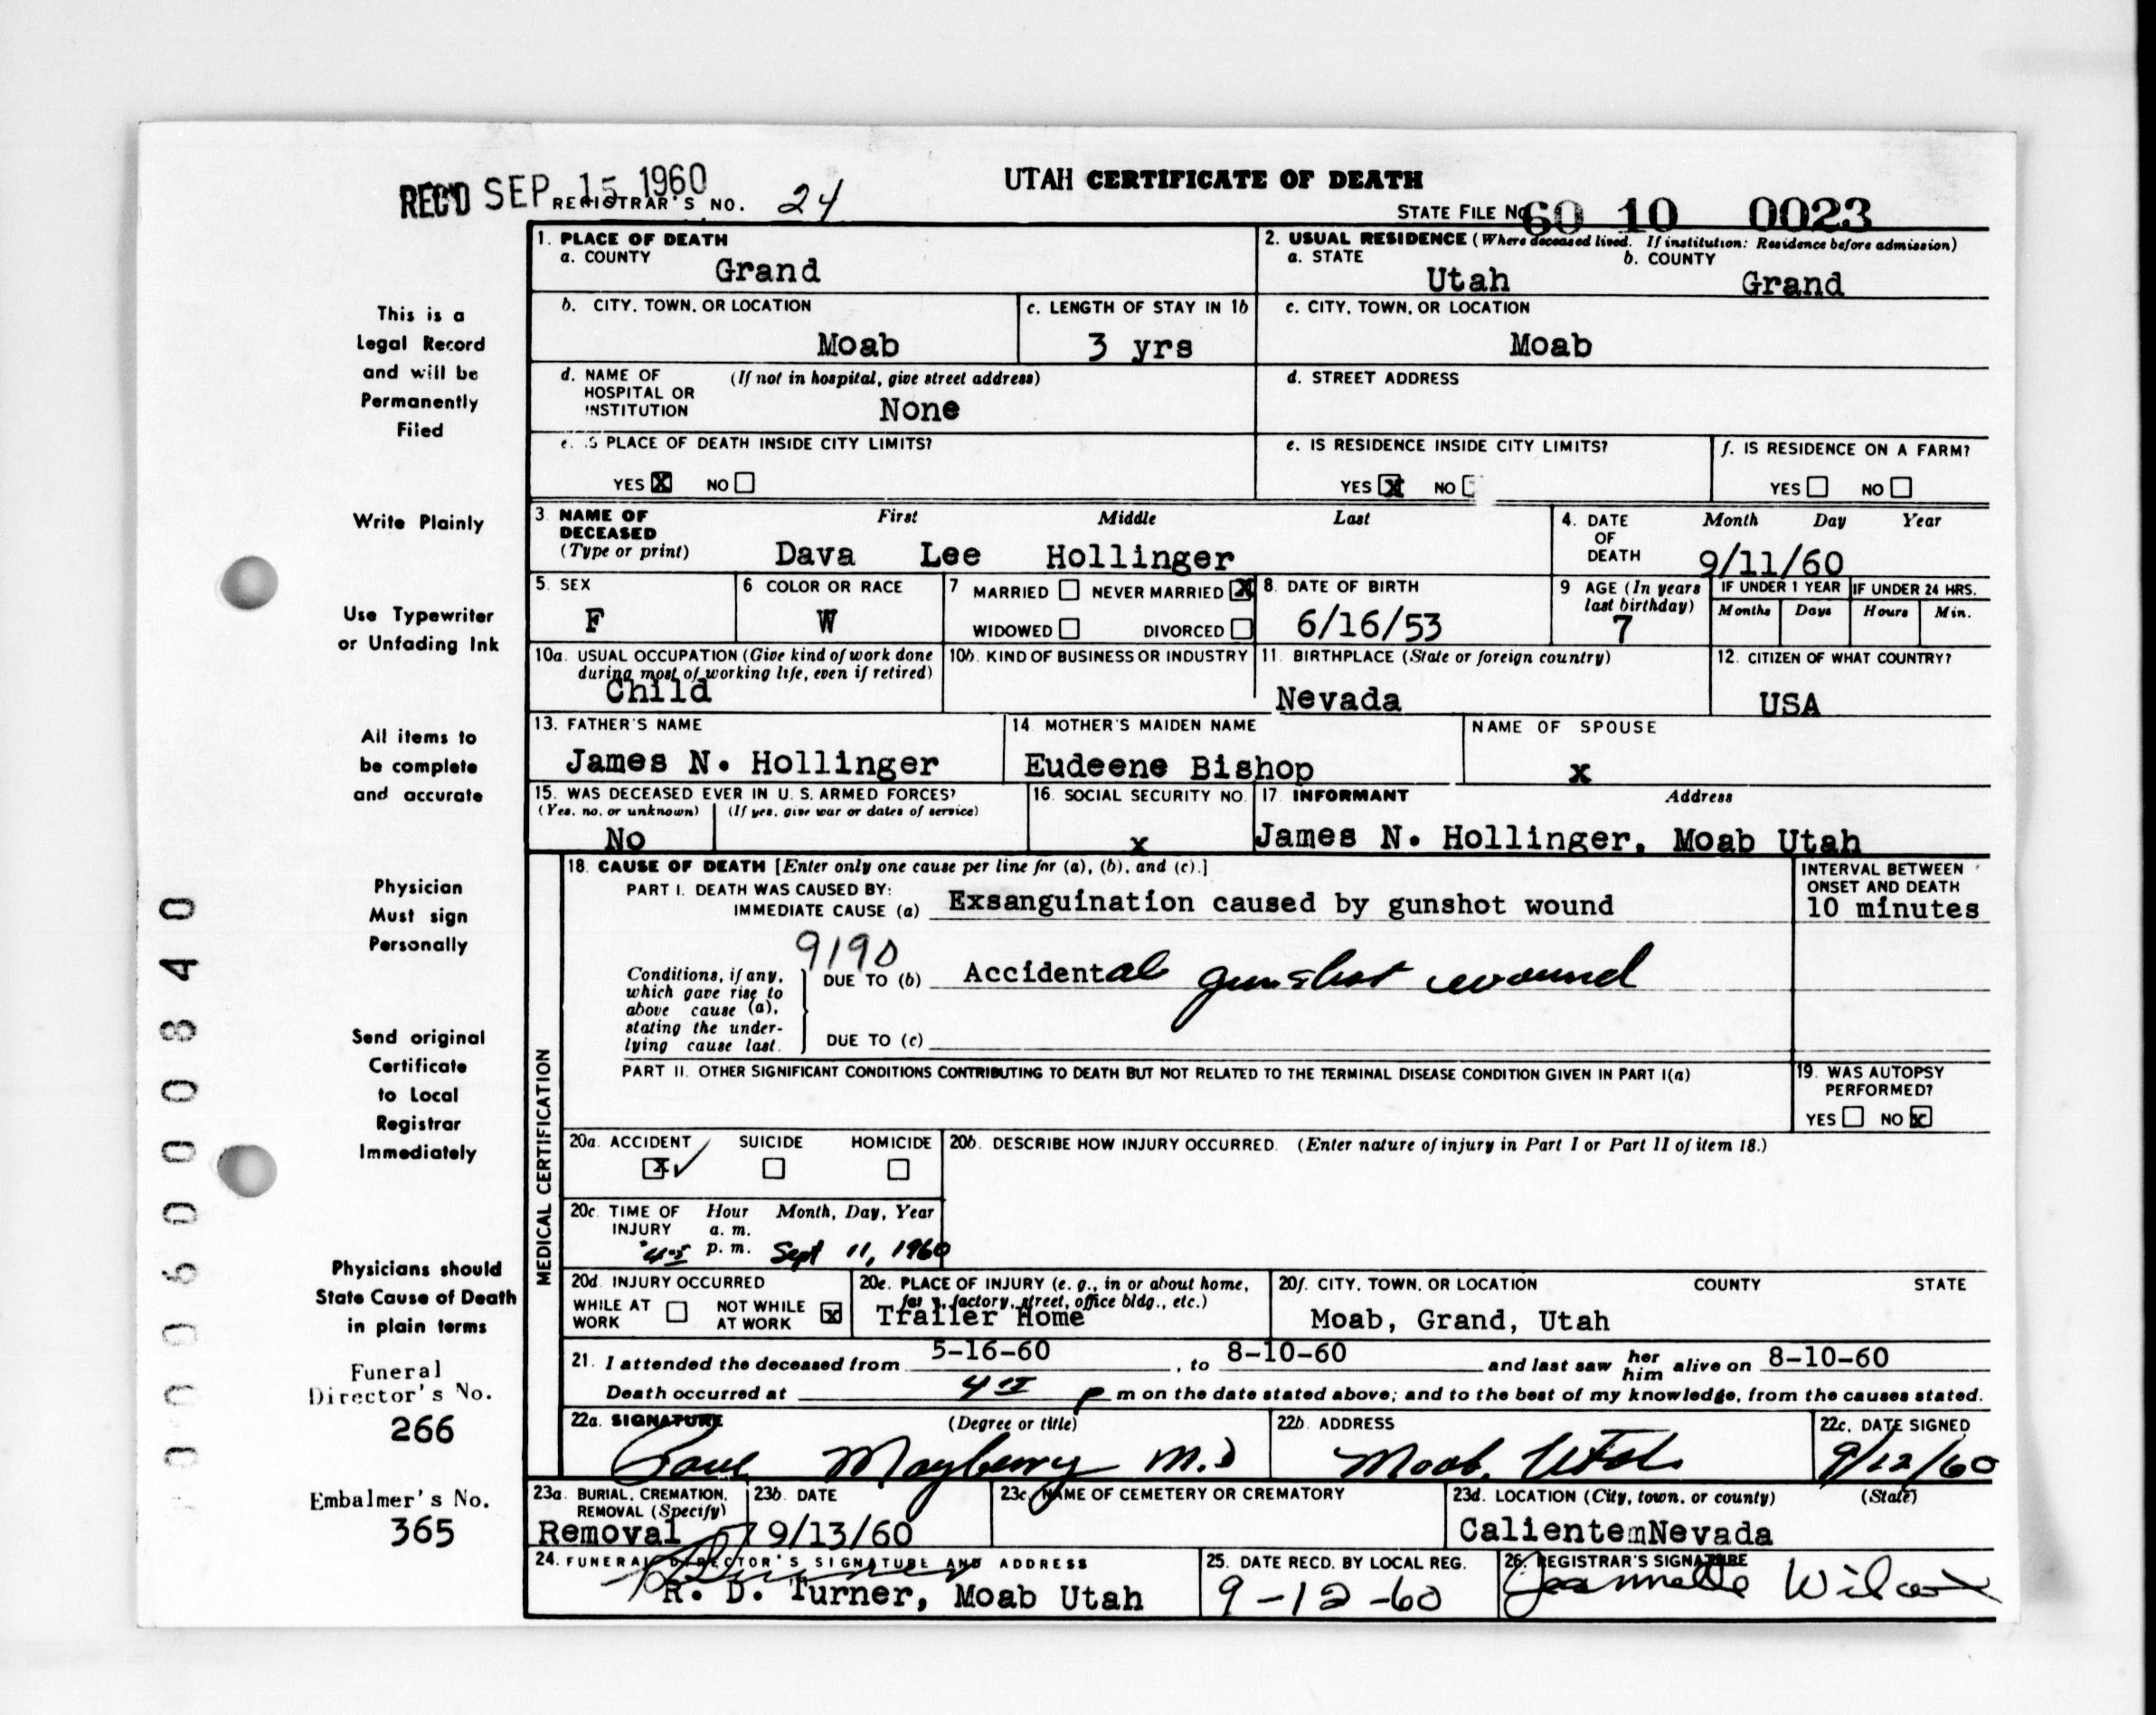 REC'D SEP 15 1960
REGISTRAR'S NO. 24
UTAH CERTIFICATE OF DEATH
STATE FILE NO. 60 10 0023
1. PLACE OF DEATH
a. COUNTY
Grand
2. USUAL RESIDENCE (Where deceased lived. If institution: Residence before admission)
a. STATE Utah b. COUNTY Grand
b. CITY, TOWN, OR LOCATION
Moab
c. LENGTH OF STAY IN 1b
3 yrs
c. CITY, TOWN, OR LOCATION
Moab
d. NAME OF HOSPITAL OR INSTITUTION (If not in hospital, give street address)
None
d. STREET ADDRESS
e. IS PLACE OF DEATH INSIDE CITY LIMITS?
YES X NO
e. IS RESIDENCE INSIDE CITY LIMITS?
YES X NO
f. IS RESIDENCE ON A FARM?
YES NO
3. NAME OF DECEASED (Type or print)
First Middle Last
Dava Lee Hollinger
4. DATE OF DEATH Month Day Year
9/11/60
5. SEX
F
6 COLOR OR RACE
W
7 MARRIED NEVER MARRIED X
WIDOWED DIVORCED
8. DATE OF BIRTH
6/16/53
9 AGE (In years last birthday)
7
IF UNDER 1 YEAR IF UNDER 24 HRS.
Months Days Hours Min.
10a. USUAL OCCUPATION (Give kind of work done during most of working life, even if retired)
Child
10b. KIND OF BUSINESS OR INDUSTRY
11. BIRTHPLACE (State or foreign country)
Nevada
12. CITIZEN OF WHAT COUNTRY?
USA
13. FATHER'S NAME
James N. Hollinger
14 MOTHER'S MAIDEN NAME
Eudeene Bishop
NAME OF SPOUSE
x
15. WAS DECEASED EVER IN U. S. ARMED FORCES?
(Yes, no, or unknown) (If yes, give war or dates of service)
No
16. SOCIAL SECURITY NO.
x
17. INFORMANT Address
James N. Hollinger, Moab Utah
MEDICAL CERTIFICATION
18. CAUSE OF DEATH [Enter only one cause per line for (a), (b), and (c).]
PART I. DEATH WAS CAUSED BY:
IMMEDIATE CAUSE (a) Exsanguination caused by gunshot wound
INTERVAL BETWEEN ONSET AND DEATH
10 minutes
9190
Conditions, if any, which gave rise to above cause (a), stating the underlying cause last.
DUE TO (b) Accidental gunshot wound
DUE TO (c)
PART II. OTHER SIGNIFICANT CONDITIONS CONTRIBUTING TO DEATH BUT NOT RELATED TO THE TERMINAL DISEASE CONDITION GIVEN IN PART I(a)
19. WAS AUTOPSY PERFORMED?
YES NO X
20a. ACCIDENT SUICIDE HOMICIDE
X
20b. DESCRIBE HOW INJURY OCCURRED. (Enter nature of injury in Part I or Part II of item 18.)
20c. TIME OF INJURY Hour Month, Day, Year
a. m.
p. m. Sept 11, 1960
20d. INJURY OCCURRED
WHILE AT WORK NOT WHILE AT WORK X
20e. PLACE OF INJURY (e. g., in or about home, factory, street, office bldg., etc.)
Trailer Home
20f. CITY, TOWN, OR LOCATION COUNTY STATE
Moab, Grand, Utah
21. I attended the deceased from 5-16-60, to 8-10-60 and last saw her him alive on 8-10-60
Death occurred at p m on the date stated above; and to the best of my knowledge, from the causes stated.
22a. SIGNATURE (Degree or title)
Paul Mayberry M.D
22b. ADDRESS
Moab, Utah
22c. DATE SIGNED
9/12/60
23a. BURIAL, CREMATION, REMOVAL (Specify)
Removal
23b. DATE
9/13/60
23c. NAME OF CEMETERY OR CREMATORY
23d. LOCATION (City, town, or county) (State)
CalientemNevada
24. FUNERAL DIRECTOR'S SIGNATURE AND ADDRESS
R. D. Turner, Moab Utah
25. DATE RECD. BY LOCAL REG.
9-12-60
26. REGISTRAR'S SIGNATURE
Jeannette Wilcox
This is a
Legal Record
and will be
Permanently
Filed
Write Plainly
Use Typewriter
or Unfading Ink
All items to
be complete
and accurate
Physician
Must sign
Personally
Send original
Certificate
to Local
Registrar
Immediately
Physicians should
State Cause of Death
in plain terms
Funeral
Director's No.
266
Embalmer's No.
365
000600840